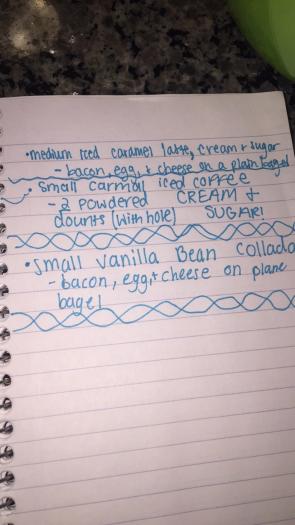 •medium iced caramel latte, cream + sugar
- bacon, egg, + cheese on a plain bagel
• Small carmal iced coffee
- 2 powdered CREAM +
dounts (with hole) SUGAR!
• Small Vanilla Bean Collada
- bacon, egg, + cheese on plane
bagel